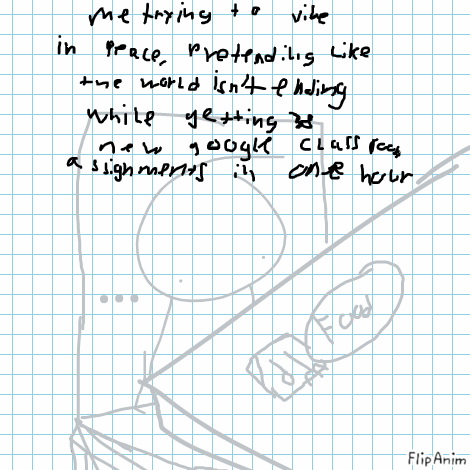 me trying to vibe
in peace, pretending like
the world isn't ending
while getting 28
new google classroom
assignments in one hour
...
Food
FlipAnim